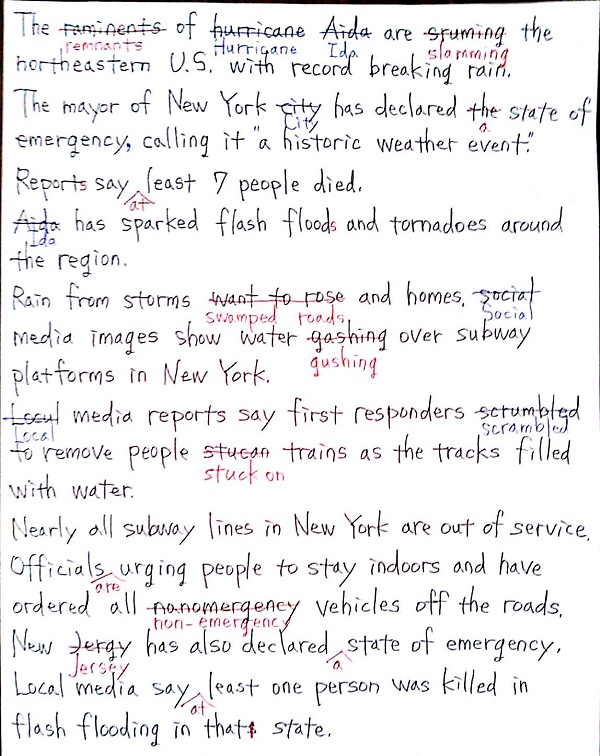 The raminents of hurricane Aida are sruming the
remnants Hurricane Ida slamming
northeastern U.S. with record breaking rain.
The mayor of New York city has declared the state of
City a
emergency, calling it "a historic weather event."
Reports say least 7 people died.
at
Aida has sparked flash floods and tornadoes around
Ida
the region.
Rain from storms want to rose and homes, social
swamped roads, Social
media images show water gashing over subway
gushing
platforms in New York.
Locul media reports say first responders scrumbled
Local scrambled
to remove people stucan trains as the tracks filled
stuck on
with water.
Nearly all subway lines in New York are out of service.
Officials urging people to stay indoors and have
are
ordered all nanomergency vehicles off the roads,
non-emergency
New Jergy has also declared state of emergency.
Jersey a
Local media say least one person was killed in
at
flash flooding in that state.